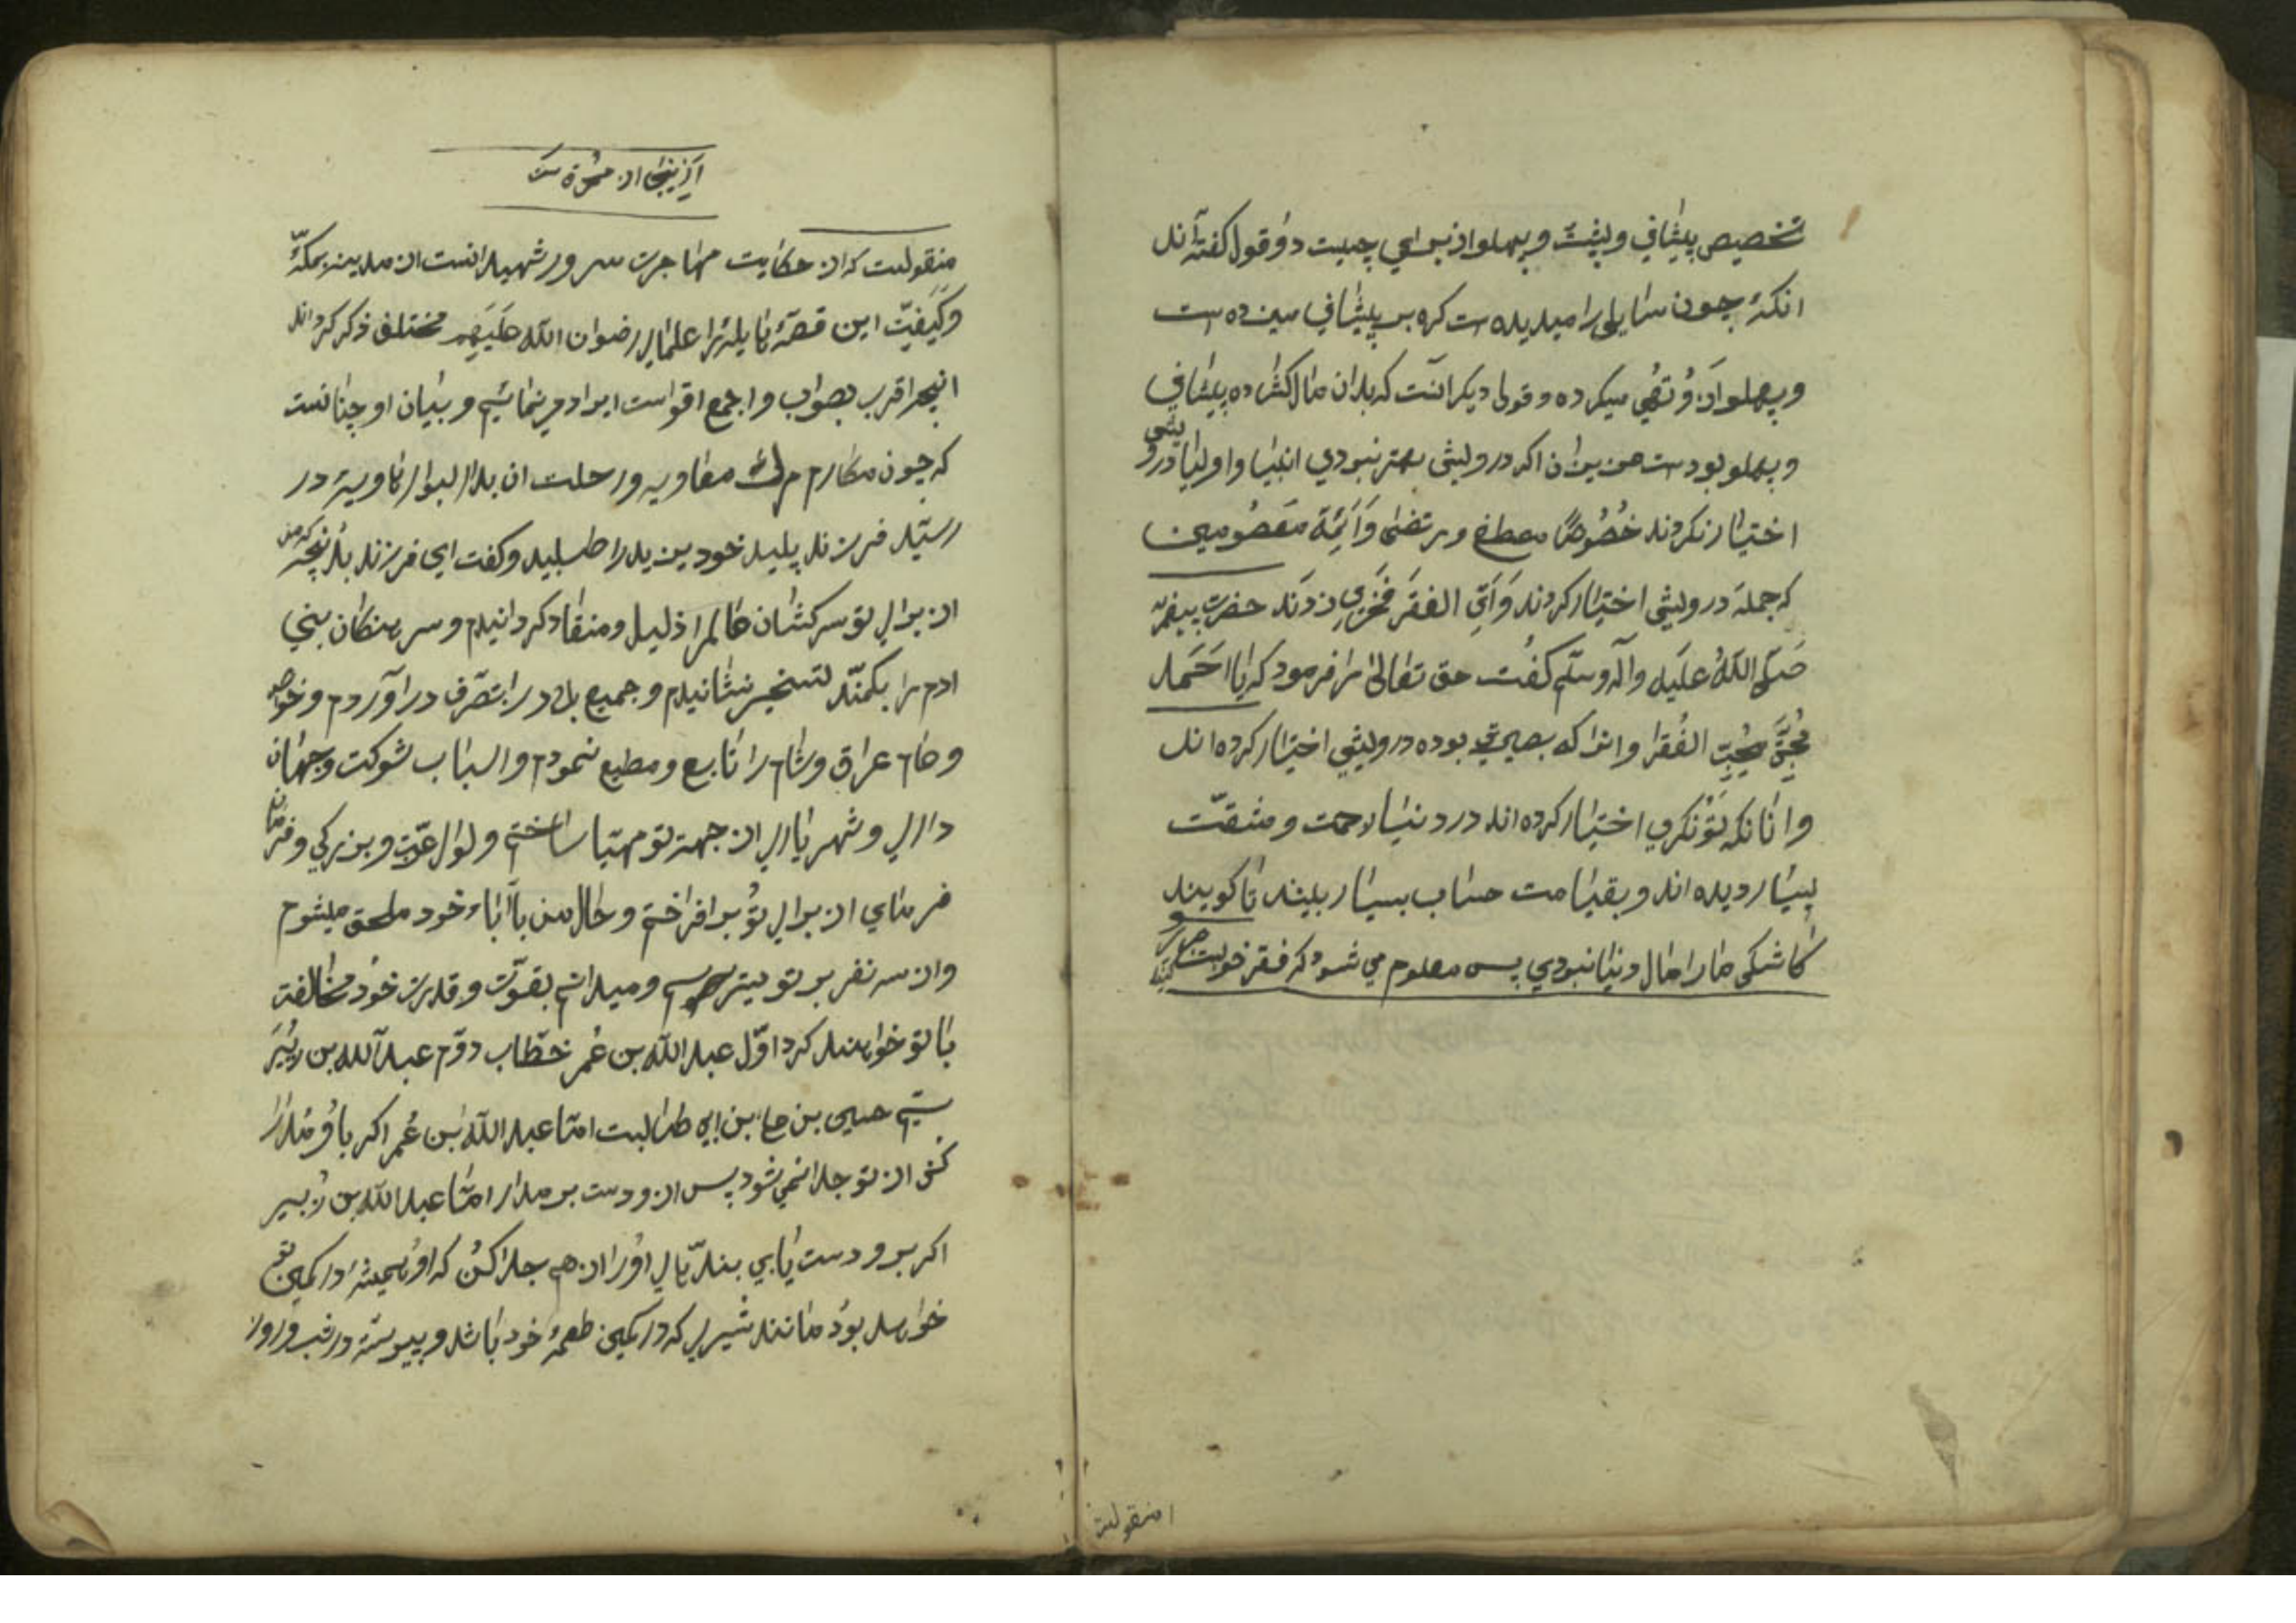 تخصیص پیشانی و پشت و پهلو از برای چیست دو قول گفته‌اند
انکه چون سایلی را میدیده است کره بر پیشانی میزده است
و پهلو از و تهی میکرده و قول دیکر آنست که بدان مال کشاده پیشانی
و پهلو بوده است عزیزان اکر درویشی بهتر نبودی انبیا و اولیا درویشی
اختیار نکردند خُصُوصًا مصطفی و مرتضی وَ اَئِمَّهٔ مَعصُومین
که جمله درویشی اختیار کردند وَ الفقر فَخرِی زدند حضرت پیغمبر
صَلّی اللّهُ عَلَیه وآله وسلّم کفت حق تعالی مرا فرمود که یا اَحمَد
مُحِبَّتی الفُقَرا وانرا که بصیرتی بوده درویشی اختیار کرده‌اند
وانانکه توُنکری اختیار کرده‌اند در دنیا زحمت و مشقّت
بسیار دیده‌اند و بقیامت حساب بسیار تا کویند
کاشکی ما را مال دنیا نبودی پس معلوم می شود که فقر
منقولست
منقولست که از حکایت مهاجرت سرور شهیدانست از مدینه بمکّهٔ
وکیفیّت این قصّهٔ را علمای رضوان اللّه عَلَیهِم مختلف ذکر کرده‌اند
انچه اقرب بصواب و اجمع اقوالست ایراد می نمائیم و بیان او چنانست
که چون مکارم معاویه و رحلت ان بدار البوار در
رسید فرزند پلید خود یزید را طلبید وکفت ای فرزند بدانچه که من
از برای تو سرکشان عالم را ذلیل ومنقاد کردانیدم و سرهنکان بنی
ادم را بکمند تسخیر نشانیدم و جمیع بلاد را بتصرف دراوردم و خواص
و عام عراق و شام را تابع و مطیع نمودم و اسباب شوکت و جهان
داری و شهریاری از جهت تو مهیا ساختم و لوای عزّت و بزرکی و فرمان
فرمای از برای تو بر افراختم و حال من با آباء خود ملحق میشوم
واز سه نفر بر تو میترسم و میدانم بقوّت و قدرت خود مخالفت
با تو خواهند کرد اوّل عبد اللّه بن عُمر خطّاب دوّم عبد اللّه بن زُبیر
سیّم حسین بن علی بن ابی طالبست امّا عبد اللّه بن عُمر اکر با او مدارا
کنی از تو جدا نمی شود پس از و دست بر مدار امّا عبد اللّه بن زبیر
اکر بر و دست یابی بند بای او را از هم جدا کن که او همیشه در کمین تو
خواهد بود مانند شیری که در کمین طعمهٔ خود باشد و پیوسته در شب و روز